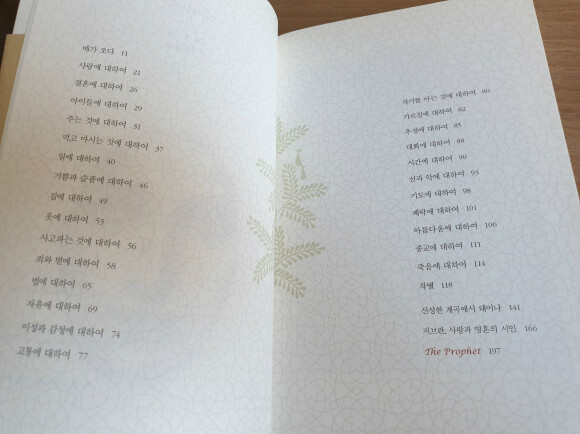 배가 오다 11
사랑에 대하여 21
결혼에 대하여 26
아이들에 대하여 29
주는 것에 대하여 31
먹고 마시는 것에 대하여 37
일에 대하여 40
기쁨과 슬픔에 대하여 46
집에 대하여 49
옷에 대하여 53
사고파는 것에 대하여 56
죄와 벌에 대하여 58
법에 대하여 65
자유에 대하여 69
이성과 감정에 대하여 74
고통에 대하여 77
자기를 아는 것에 대하여 80
가르침에 대하여 82
우정에 대하여 85
대화에 대하여 88
시간에 대하여 90
선과 악에 대하여 93
기도에 대하여 98
쾌락에 대하여 101
아름다움에 대하여 106
종교에 대하여 111
죽음에 대하여 114
작별 118
신성한 계곡에서 태어나 141
지브란, 사랑과 영혼의 시인 166
The Prophet 197